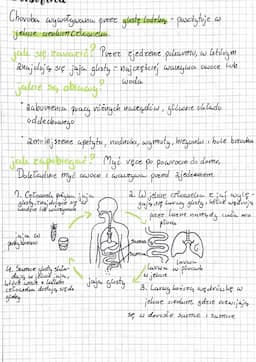 Choroba wywoływana przez glistę ludzką - pasożytuje w
jelicie cienkim człowieka.
jak się zarazić? Przez zjedzenie pokarmu, w którym
znajdują się jaja glisty - najczęściej warzywa owoce lub
woda
jakie są objawy?
• zaburzenia pracy różnych narządów, głównie układu
oddechowego
• zmniejszenie apetytu, nudności, wymioty, biegunki i bóle brzucha
jak zapobiegać? Myć ręce po powrocie do domu,
Dokładnie myć owoce i warzywa przed zjedzeniem
1. Człowiek połyka jaja
glisty znajdujące się w
wodzie lub warzywach
2. W jelicie człowieka z jaj
się larwy glisty, które wędrują
przez inne narządy ciała m.in
płuca
jaja w
samica
samiec
larwa
w jelicie
larwa
w płucach
jaja glisty
4. Samice glisty
jaja,
które wraz z kałem
człowieka dostają się do
gleby
3. Larwy wędrują w
jelicie cienkim gdzie rozwijają
się w dorosłe samce i samice